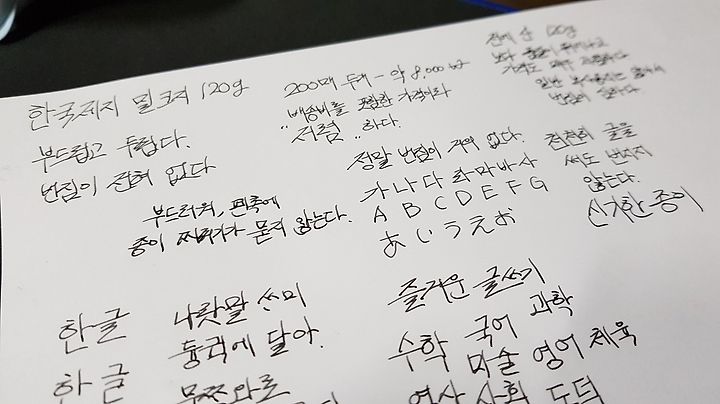 한국제지 밀크지 120g
부드럽고 두껍다.
번짐이 전혀 없다
부드러워, 펜촉에
종이 찌꺼기가 묻지 않는다.
200매 두개 - 약 8,000₩
배송비를 포함한 가격이라
"저렴"하다.
정말 번짐이 거의 없다.
가나다라마바사
A B C D E F G
あいうえお
전에 산 120g
보다 품질이 뛰어나고
가격도 매우 저렴하다
일반
번짐이 심하다.
천천히 글을
써도 번지지
않는다.
신기한 종이
한글 나랏말 쓰미
듕귁에 달아.
한글 문쯔와로
즐거운 글쓰기
수학 국어 과학
미술 영어 체육
역사 사회 도덕